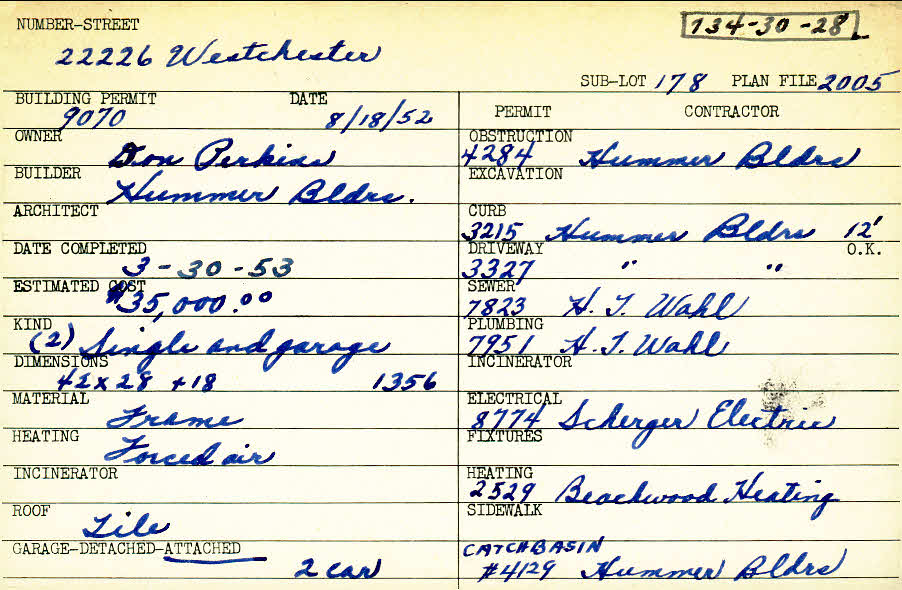 NUMBER-STREET
134-30-28
22226 Westchester
SUB-LOT 178 PLAN FILE 2005
BUILDING PERMIT DATE
9070 8/18/52
OWNER
Don Perkins
BUILDER
Hummer Bldrs.
ARCHITECT
DATE COMPLETED
3-30-53
ESTIMATED COST
$35,000.00
KIND
(2) Single and garage
DIMENSIONS
42x28 +18 1356
MATERIAL
Frame
HEATING
Forced air
INCINERATOR
ROOF
Tile
GARAGE-DETACHED-ATTACHED
2 car
PERMIT CONTRACTOR
OBSTRUCTION
4284 Hummer Bldrs
EXCAVATION
CURB
3215 Hummer Bldrs 12'
DRIVEWAY O.K.
3327 " "
SEWER
7823 H. T. Wahl
PLUMBING
7951 H. T. Wahl
INCINERATOR
ELECTRICAL
8774 Scherger Electric
FIXTURES
HEATING
2529 Beachwood Heating
SIDEWALK
CATCHBASIN
#4129 Hummer Bldrs